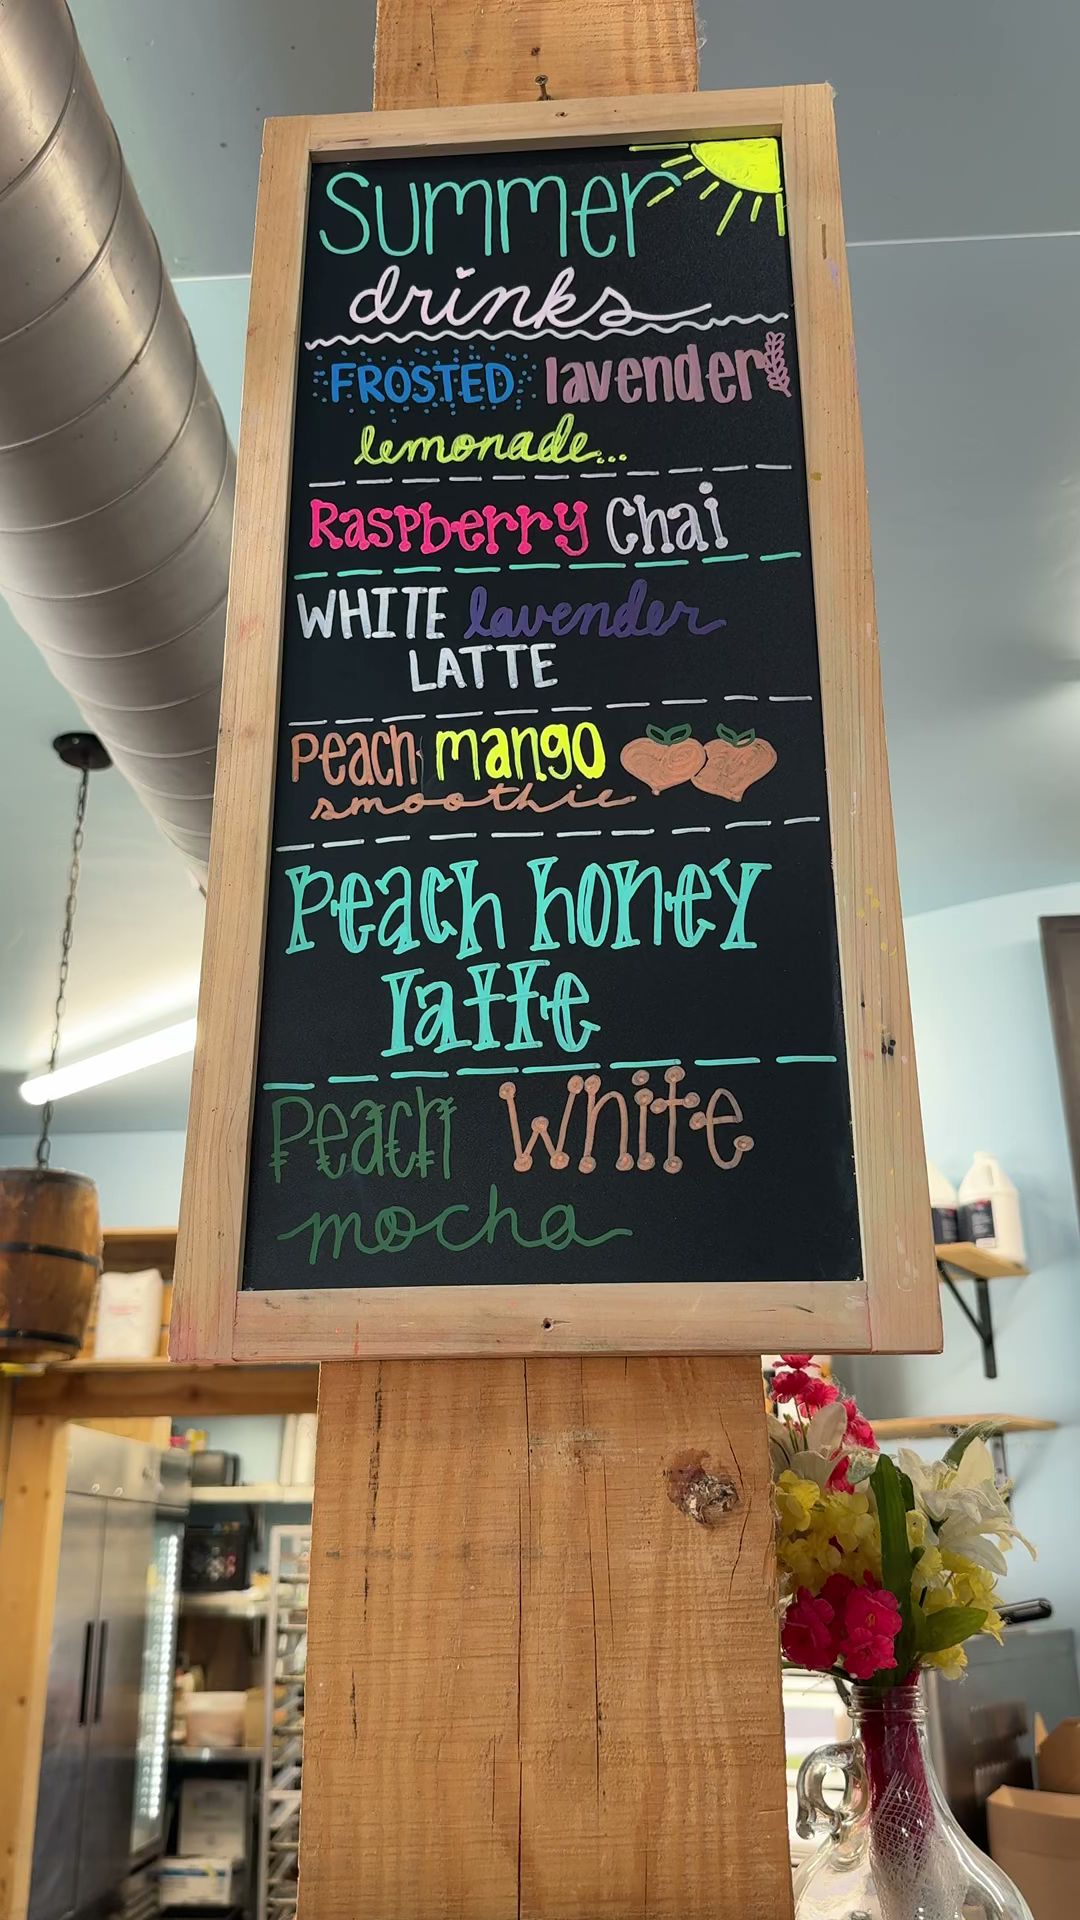 Summer
drinks
FROSTED lavender
lemonade...
Raspberry Chai
WHITE lavender
LATTE
Peach mango
smoothie
Peach honey
latte
Peach White
mocha